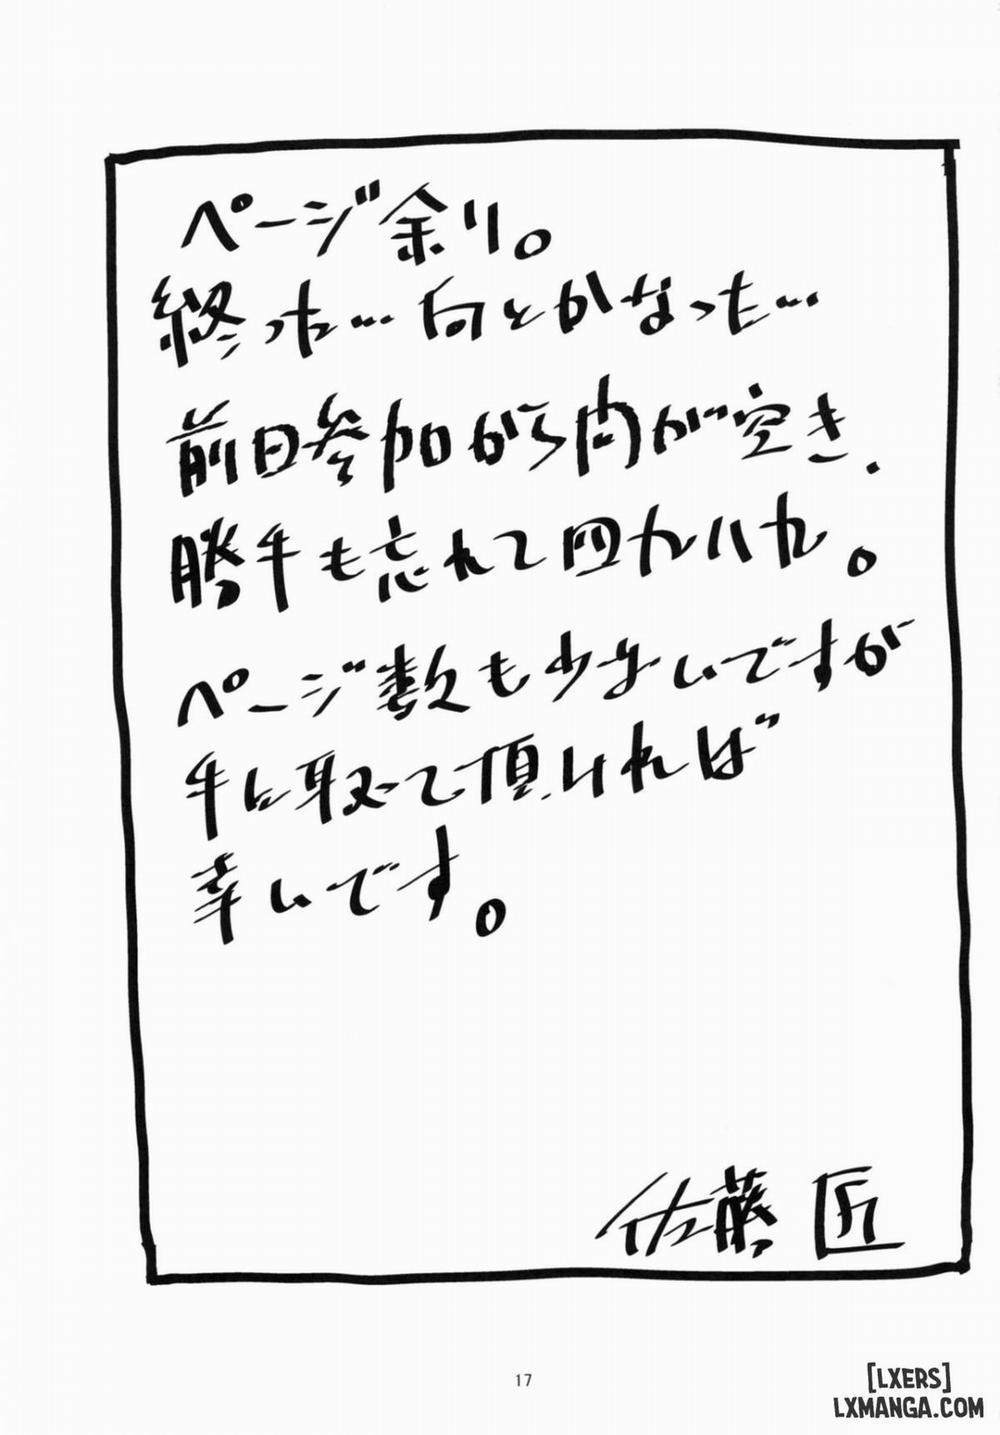 ページ余り。
終った…何とかなった…
前回参加から間が空き、
勝手も忘れて四九八九。
ページ数も少ないですが
手に取って頂ければ
幸いです。
佐藤 匠
17
[LXERS]
LXMANGA.COM